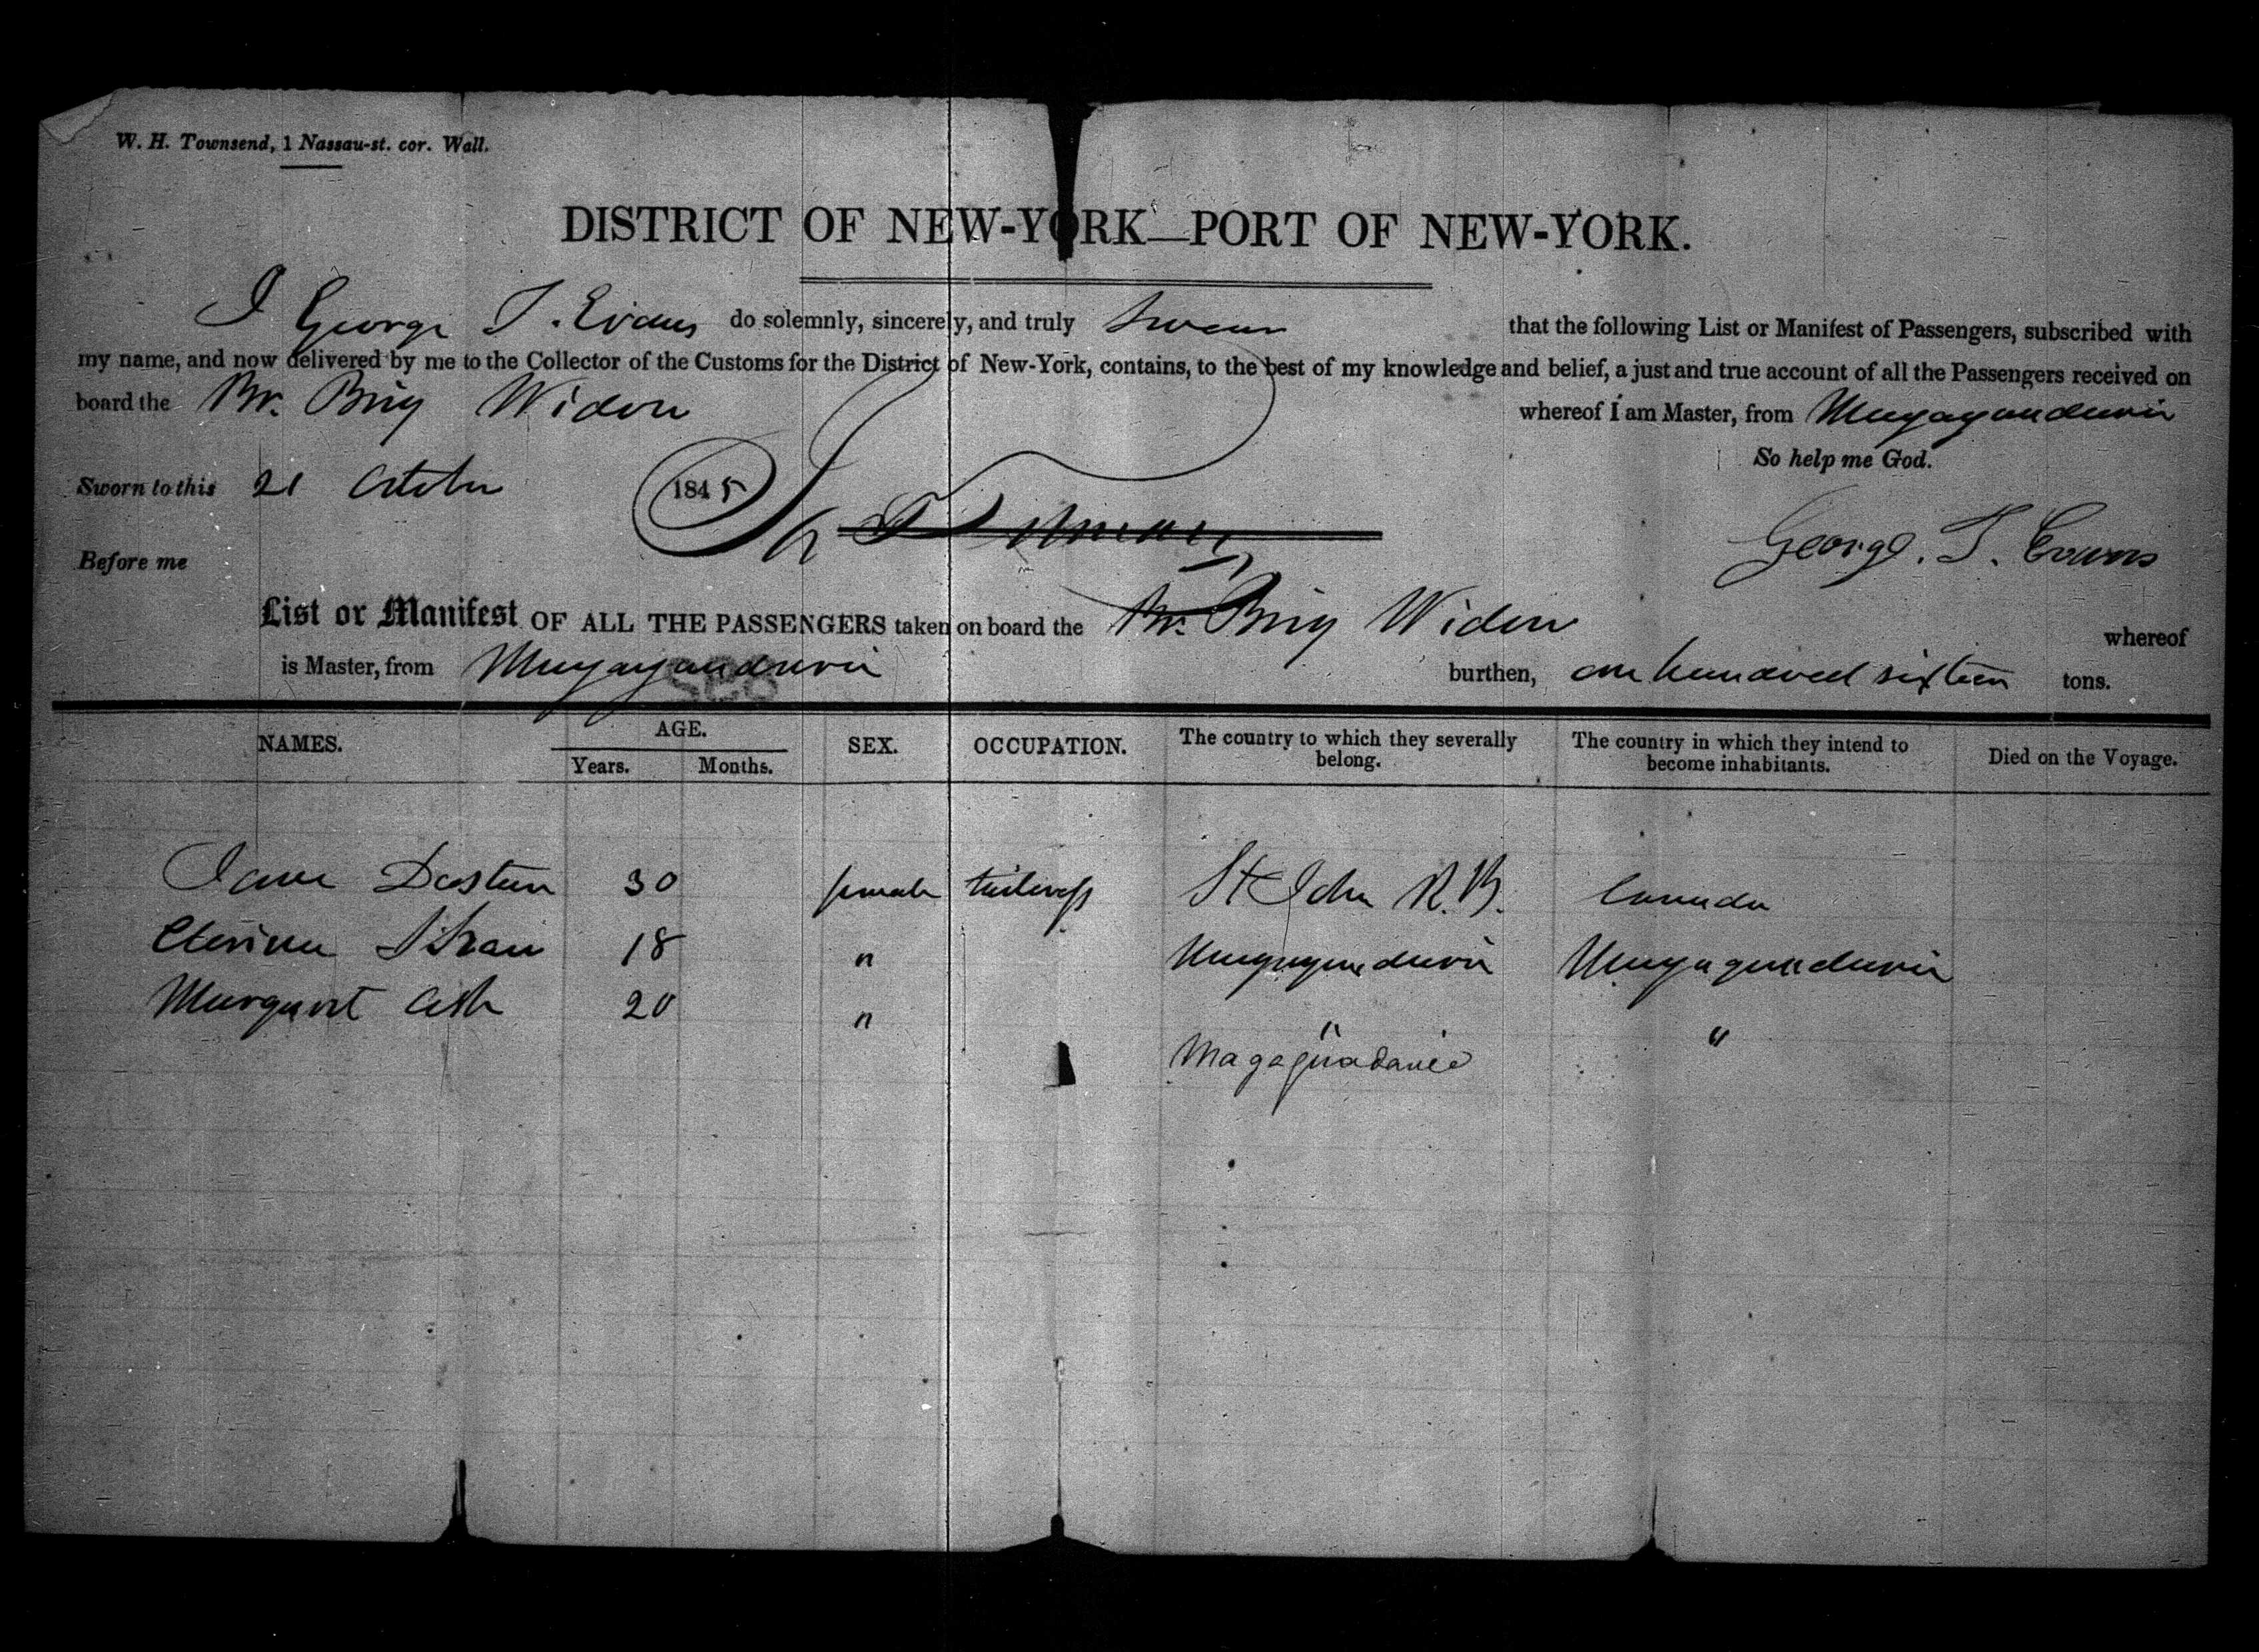 W. H. Townsend, 1 Nassau-st. cor. Wall.
DISTRICT OF NEW-YORK—PORT OF NEW-YORK.
I George T. Evans do solemnly, sincerely, and truly swear that the following List or Manifest of Passengers, subscribed with
my name, and now delivered by me to the Collector of the Customs for the District of New-York, contains, to the best of my knowledge and belief, a just and true account of all the Passengers received on
board the Br. Brig Widow whereof I am Master, from Magaguadavic
So help me God.
Sworn to this 21 October 1845
George. T. Evans
Before me
List or Manifest OF ALL THE PASSENGERS taken on board the Br. Brig Widow whereof
is Master, from Magaguadavic burthen, one hundred sixteen tons.
NAMES. AGE. SEX. OCCUPATION. The country to which they severally belong. The country in which they intend to become inhabitants. Died on the Voyage.
Years. Months.
Jane 30 female tailoress St John N.B. Canada
18 " Magaguadavic Magaguadavic
Margaret Ash 20 " " "
Magaguadavic